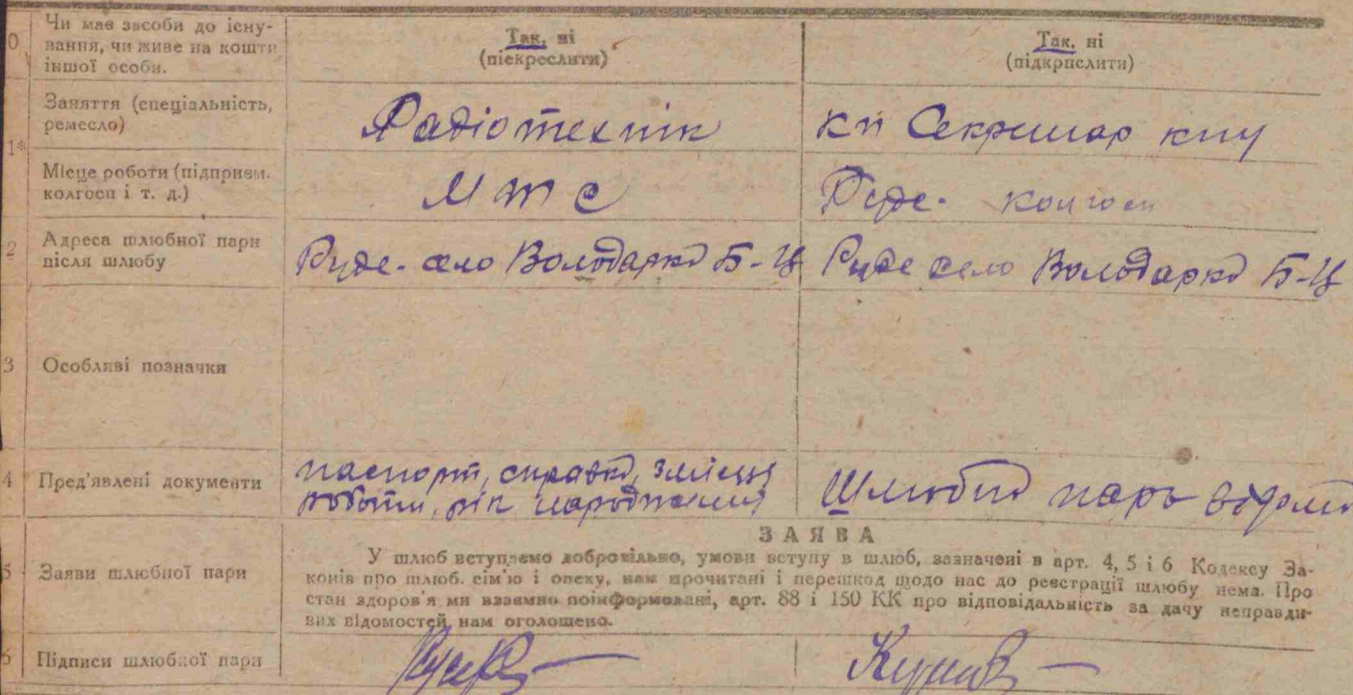 0 Чи має засоби до існу-
вання, чи живе на кошти
іншої особи.
Так, ні
(піекреслити)
Так, ні
(підкрпслити)
1* Заняття (спеціальність,
ремесло)
Радіотехнік
кп Секретар
Місце роботи (підприєм.
колгосп і т. д.)
М т с
Руде- колгосп
2 Адреса шлюбної пари
після шлюбу
Руде- село Володарка Б-Ц
Руде село Володарка Б-Ц
3 Особливі позначки
4 Пред'явлені документи
паспорт, справка, змісця
роботи, рік народження
Шлюбна пара
5 Заяви шлюбної пари
ЗАЯВА
У шлюб вступаємо добровільно, умови вступу в шлюб, зазначені в арт. 4, 5 і 6 Кодексу За-
конів про шлюб. сім'ю і опеку, нам прочитані і перешкод щодо нас до реєстрації шлюбу нема. Про
стан здоров'я ми взаємно поінформовані, арт. 88 і 150 КК про відповідальність за дачу неправди-
вих відомостей нам оголошено.
6 Підписи шлюбної пари